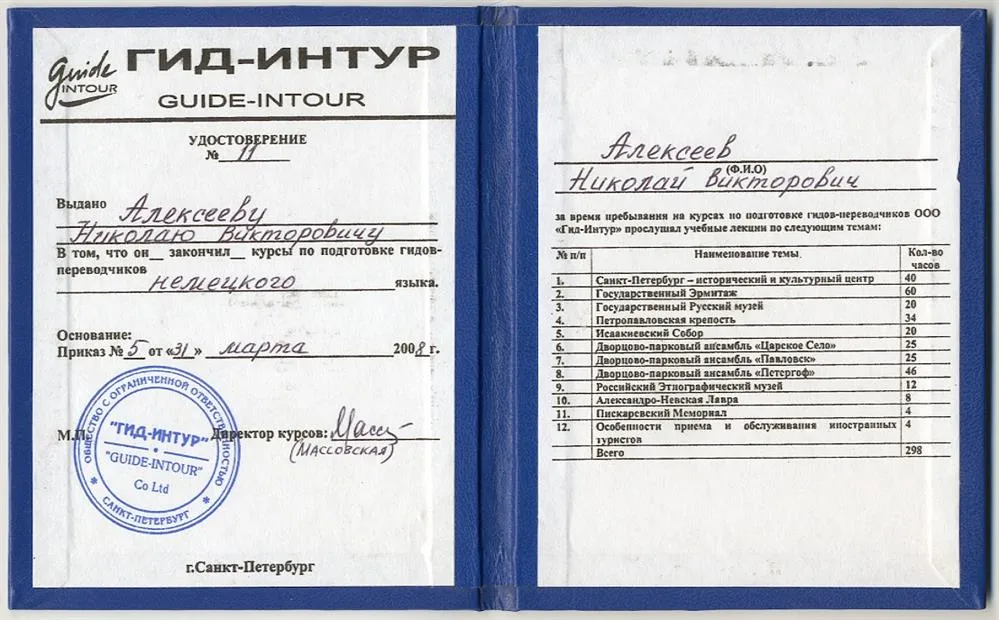 Guide
INTOUR
ГИД-ИНТУР
GUIDE-INTOUR
УДОСТОВЕРЕНИЕ
№ 11
Выдано Алексееву
Николаю Викторовичу
В том, что он__ закончил__ курсы по подготовке гидов-
переводчиков
немецкого языка.
Основание:
Приказ № 5 от «31» марта 2008 г.
М.П. Директор курсов: Масс
(МАССОВСКАЯ)
ОБЩЕСТВО С ОГРАНИЧЕННОЙ ОТВЕТСТВЕННОСТЬЮ
"ГИД-ИНТУР"
"GUIDE-INTOUR"
Co Ltd
* САНКТ-ПЕТЕРБУРГ *
г.Санкт-Петербург
Алексеев
(Ф.И.О)
Николай Викторович
за время пребывания на курсах по подготовке гидов-переводчиков ООО
«Гид-Интур» прослушал учебные лекции по следующим темам:
№ п/п Наименование темы. Кол-во
часов
1. Санкт-Петербург – исторический и культурный центр 40
2. Государственный Эрмитаж 60
3. Государственный Русский музей 20
4. Петропавловская крепость 34
5. Исаакиевский Собор 20
6. Дворцово-парковый ансамбль «Царское Село» 25
7. Дворцово-парковый ансамбль «Павловск» 25
8. Дворцово-парковый ансамбль «Петергоф» 46
9. Российский Этнографический музей 12
10. Александро-Невская Лавра 8
11. Пискаревский Мемориал 4
12. Особенности приема и обслуживания иностранных 4
туристов
Всего 298